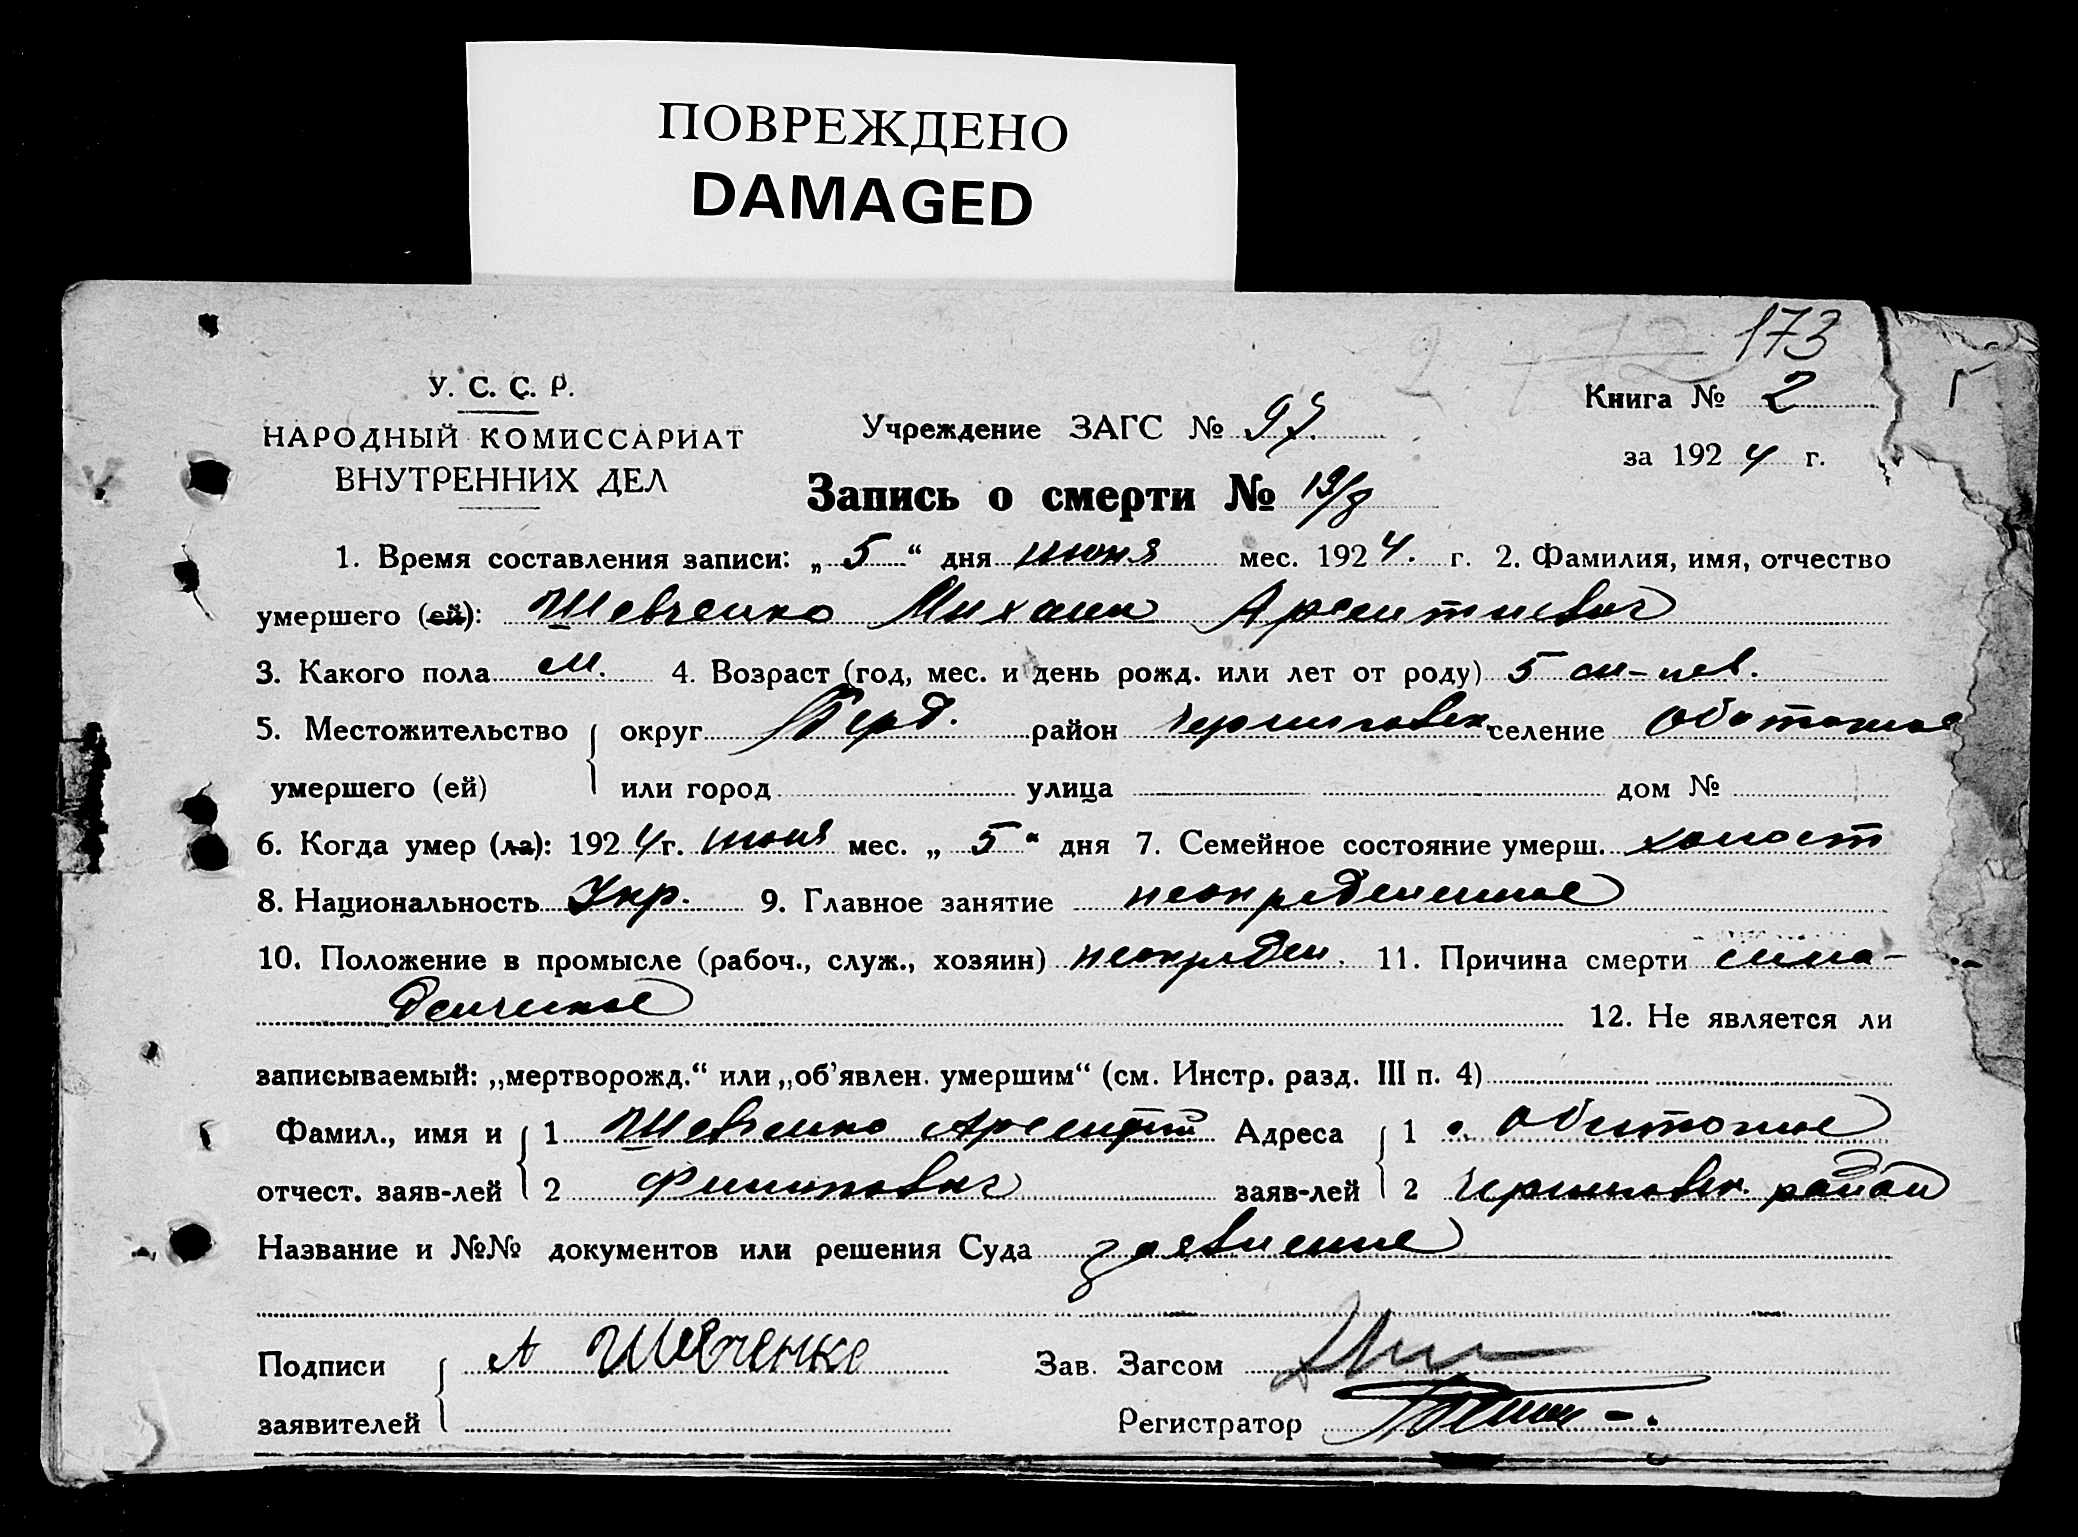 ПОВРЕЖДЕНО
DAMAGED
173
У. С. С. Р.
НАРОДНЫЙ КОМИССАРИАТ
ВНУТРЕННИХ ДЕЛ
Учреждение ЗАГС № 97.
Книга № 2
за 1924 г.
Запись о смерти № 19/8
1. Время составления записи: „5“ дня июня мес. 1924. г. 2. Фамилия, имя, отчество
умершего (ей): Шевченко Михаил Арсентиевич
3. Какого пола м. 4. Возраст (год, мес. и день рожд. или лет от роду) 5
5. Местожительство { округ Берд. район Черниговск селение Обиточное
умершего (ей) или город улица дом №
6. Когда умер (ла): 1924 г. июня мес. „5“ дня 7. Семейное состояние умерш. холост
8. Национальность Укр. 9. Главное занятие неопределенное
10. Положение в промысле (рабоч., служ., хозяин) неопредел. 11. Причина смерти
12. Не является ли
записываемый: „мертворожд.“ или „об’явлен. умершим“ (см. Инстр. разд. III п. 4)
Фамил., имя и { 1 Шевченко Арсентий Адреса { 1 Обиточное
отчест. заяв-лей 2 Филипович заяв-лей 2 Черниговск. район
Название и №№ документов или решения Суда заявление
Подписи { А Шевченко Зав. Загсом
заявителей Регистратор